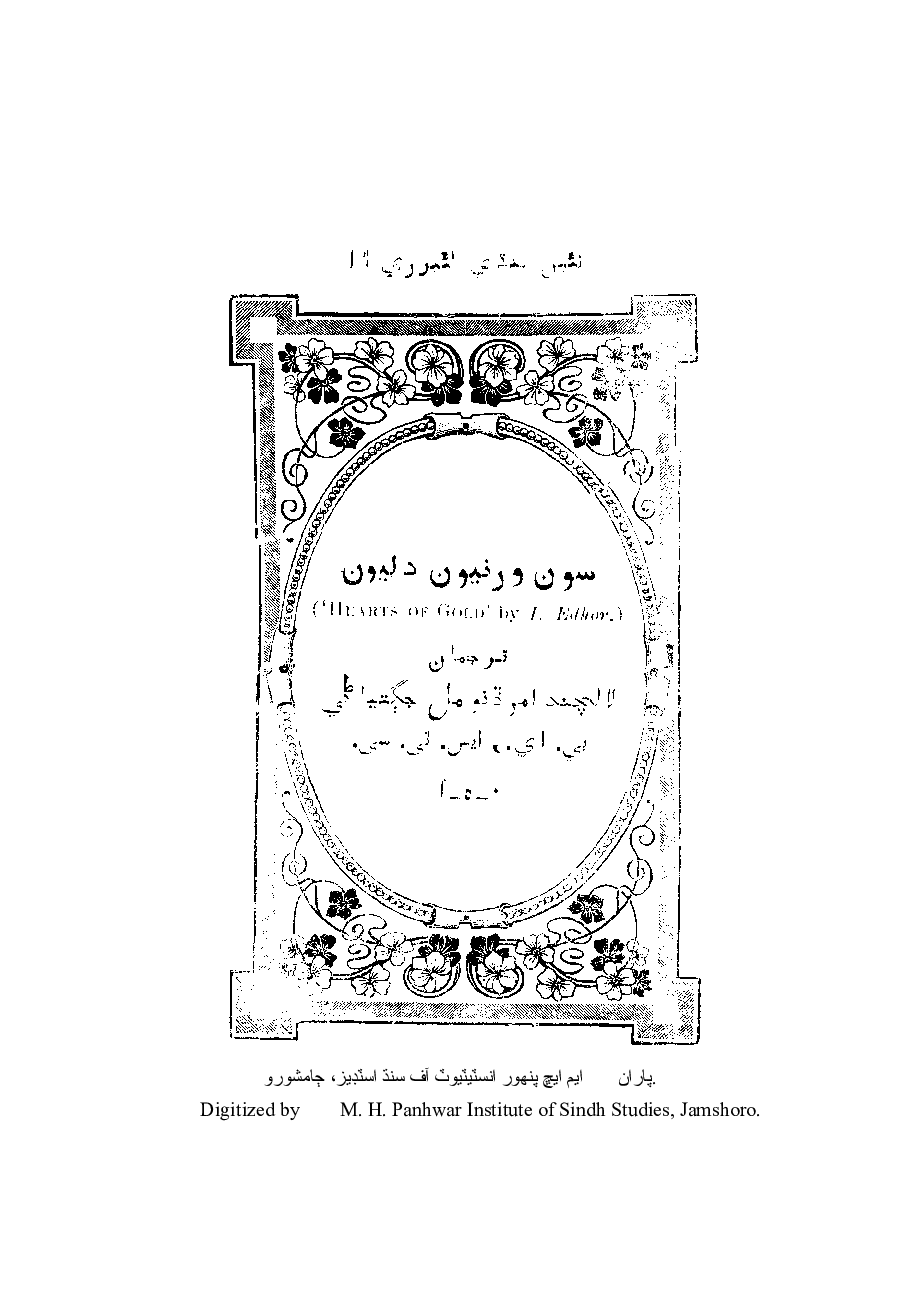 نئين سنڌي لئبرري ١٤
سون ورنيون دليون
('HEARTS OF GOLD' by L. Edhor.)
ترجمان
لالچند امر ڏنو مل جڳتياڻي
بي. اي.، ايس. ٽي. سي.
٠ـ٥ـ١
پاران ايم ايڇ پنهور انسٽيٽيوٽ آف سنڌ اسٽڊيز، ڄامشورو.
Digitized by M. H. Panhwar Institute of Sindh Studies, Jamshoro.